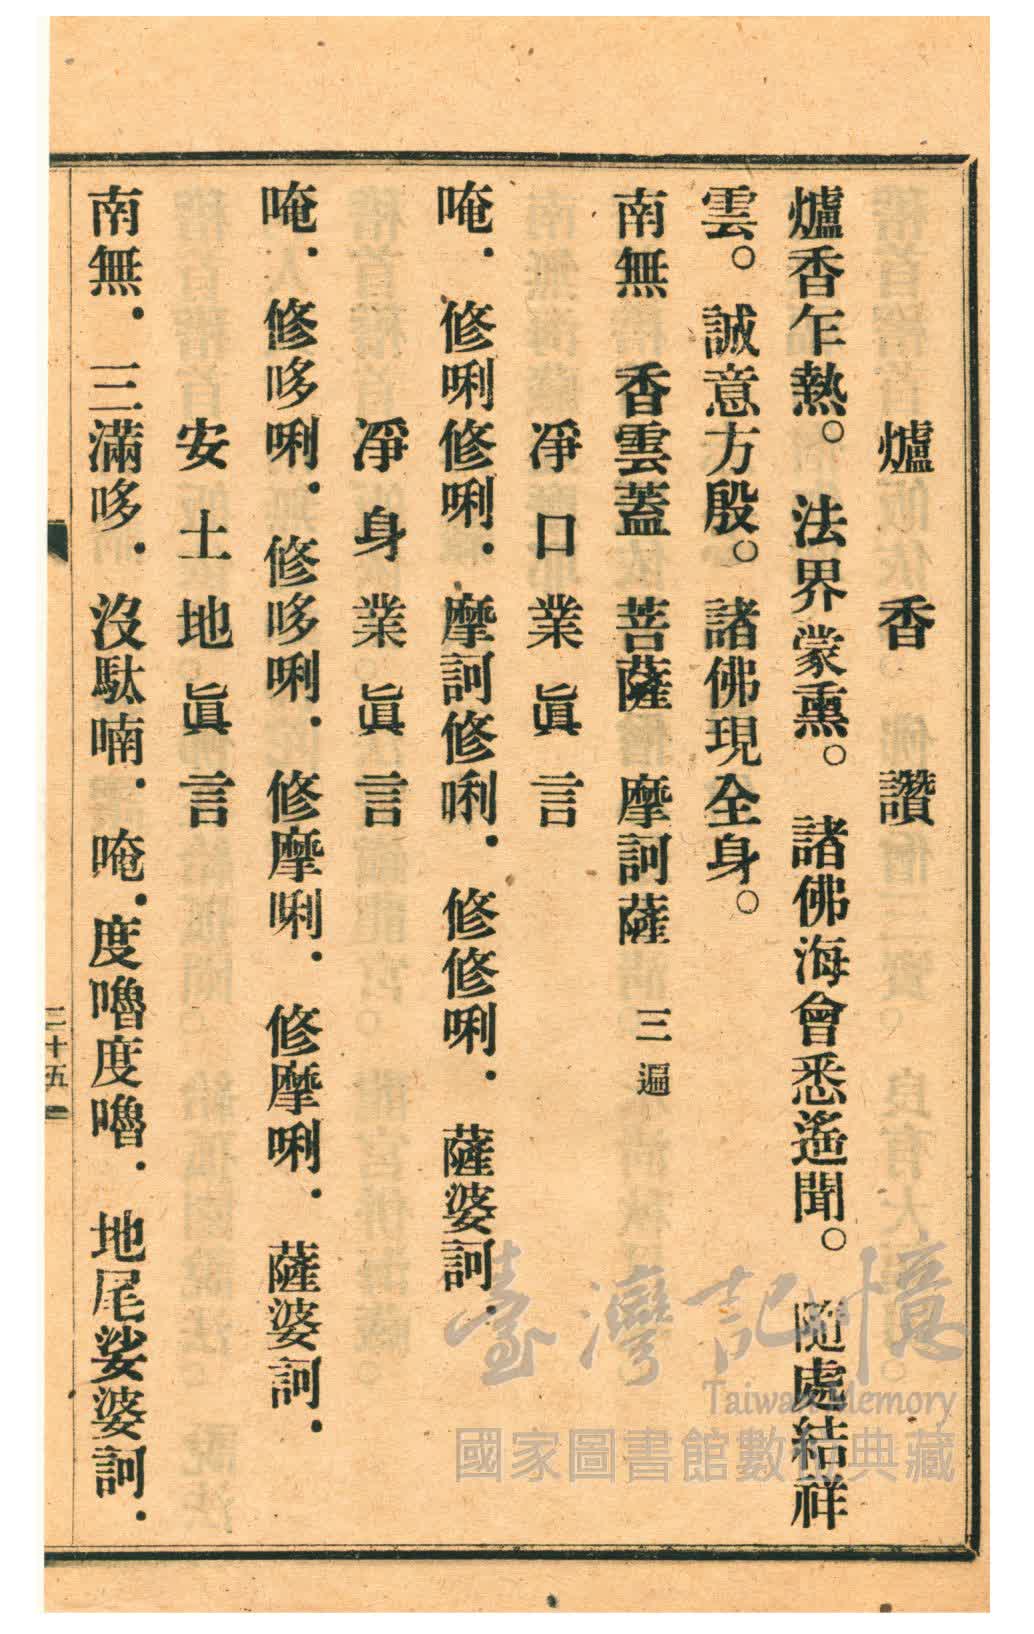 爐香讚
爐香乍熱。法界蒙熏。諸佛海會悉遙聞。隨處結祥
雲。誠意方殷。諸佛現全身。
南無 香雲蓋 菩薩 摩訶薩 三遍
淨口業眞言
唵．修唎修唎．摩訶修唎．修修唎．薩婆訶．
淨身業眞言
唵．修哆唎．修哆唎．修摩唎．修摩唎．薩婆訶．
安土地眞言
南無．三滿哆．沒馱喃．唵．度嚕度嚕．地尾娑婆訶．
三十五
臺灣記憶
Taiwan Memory
國家圖書館數位典藏